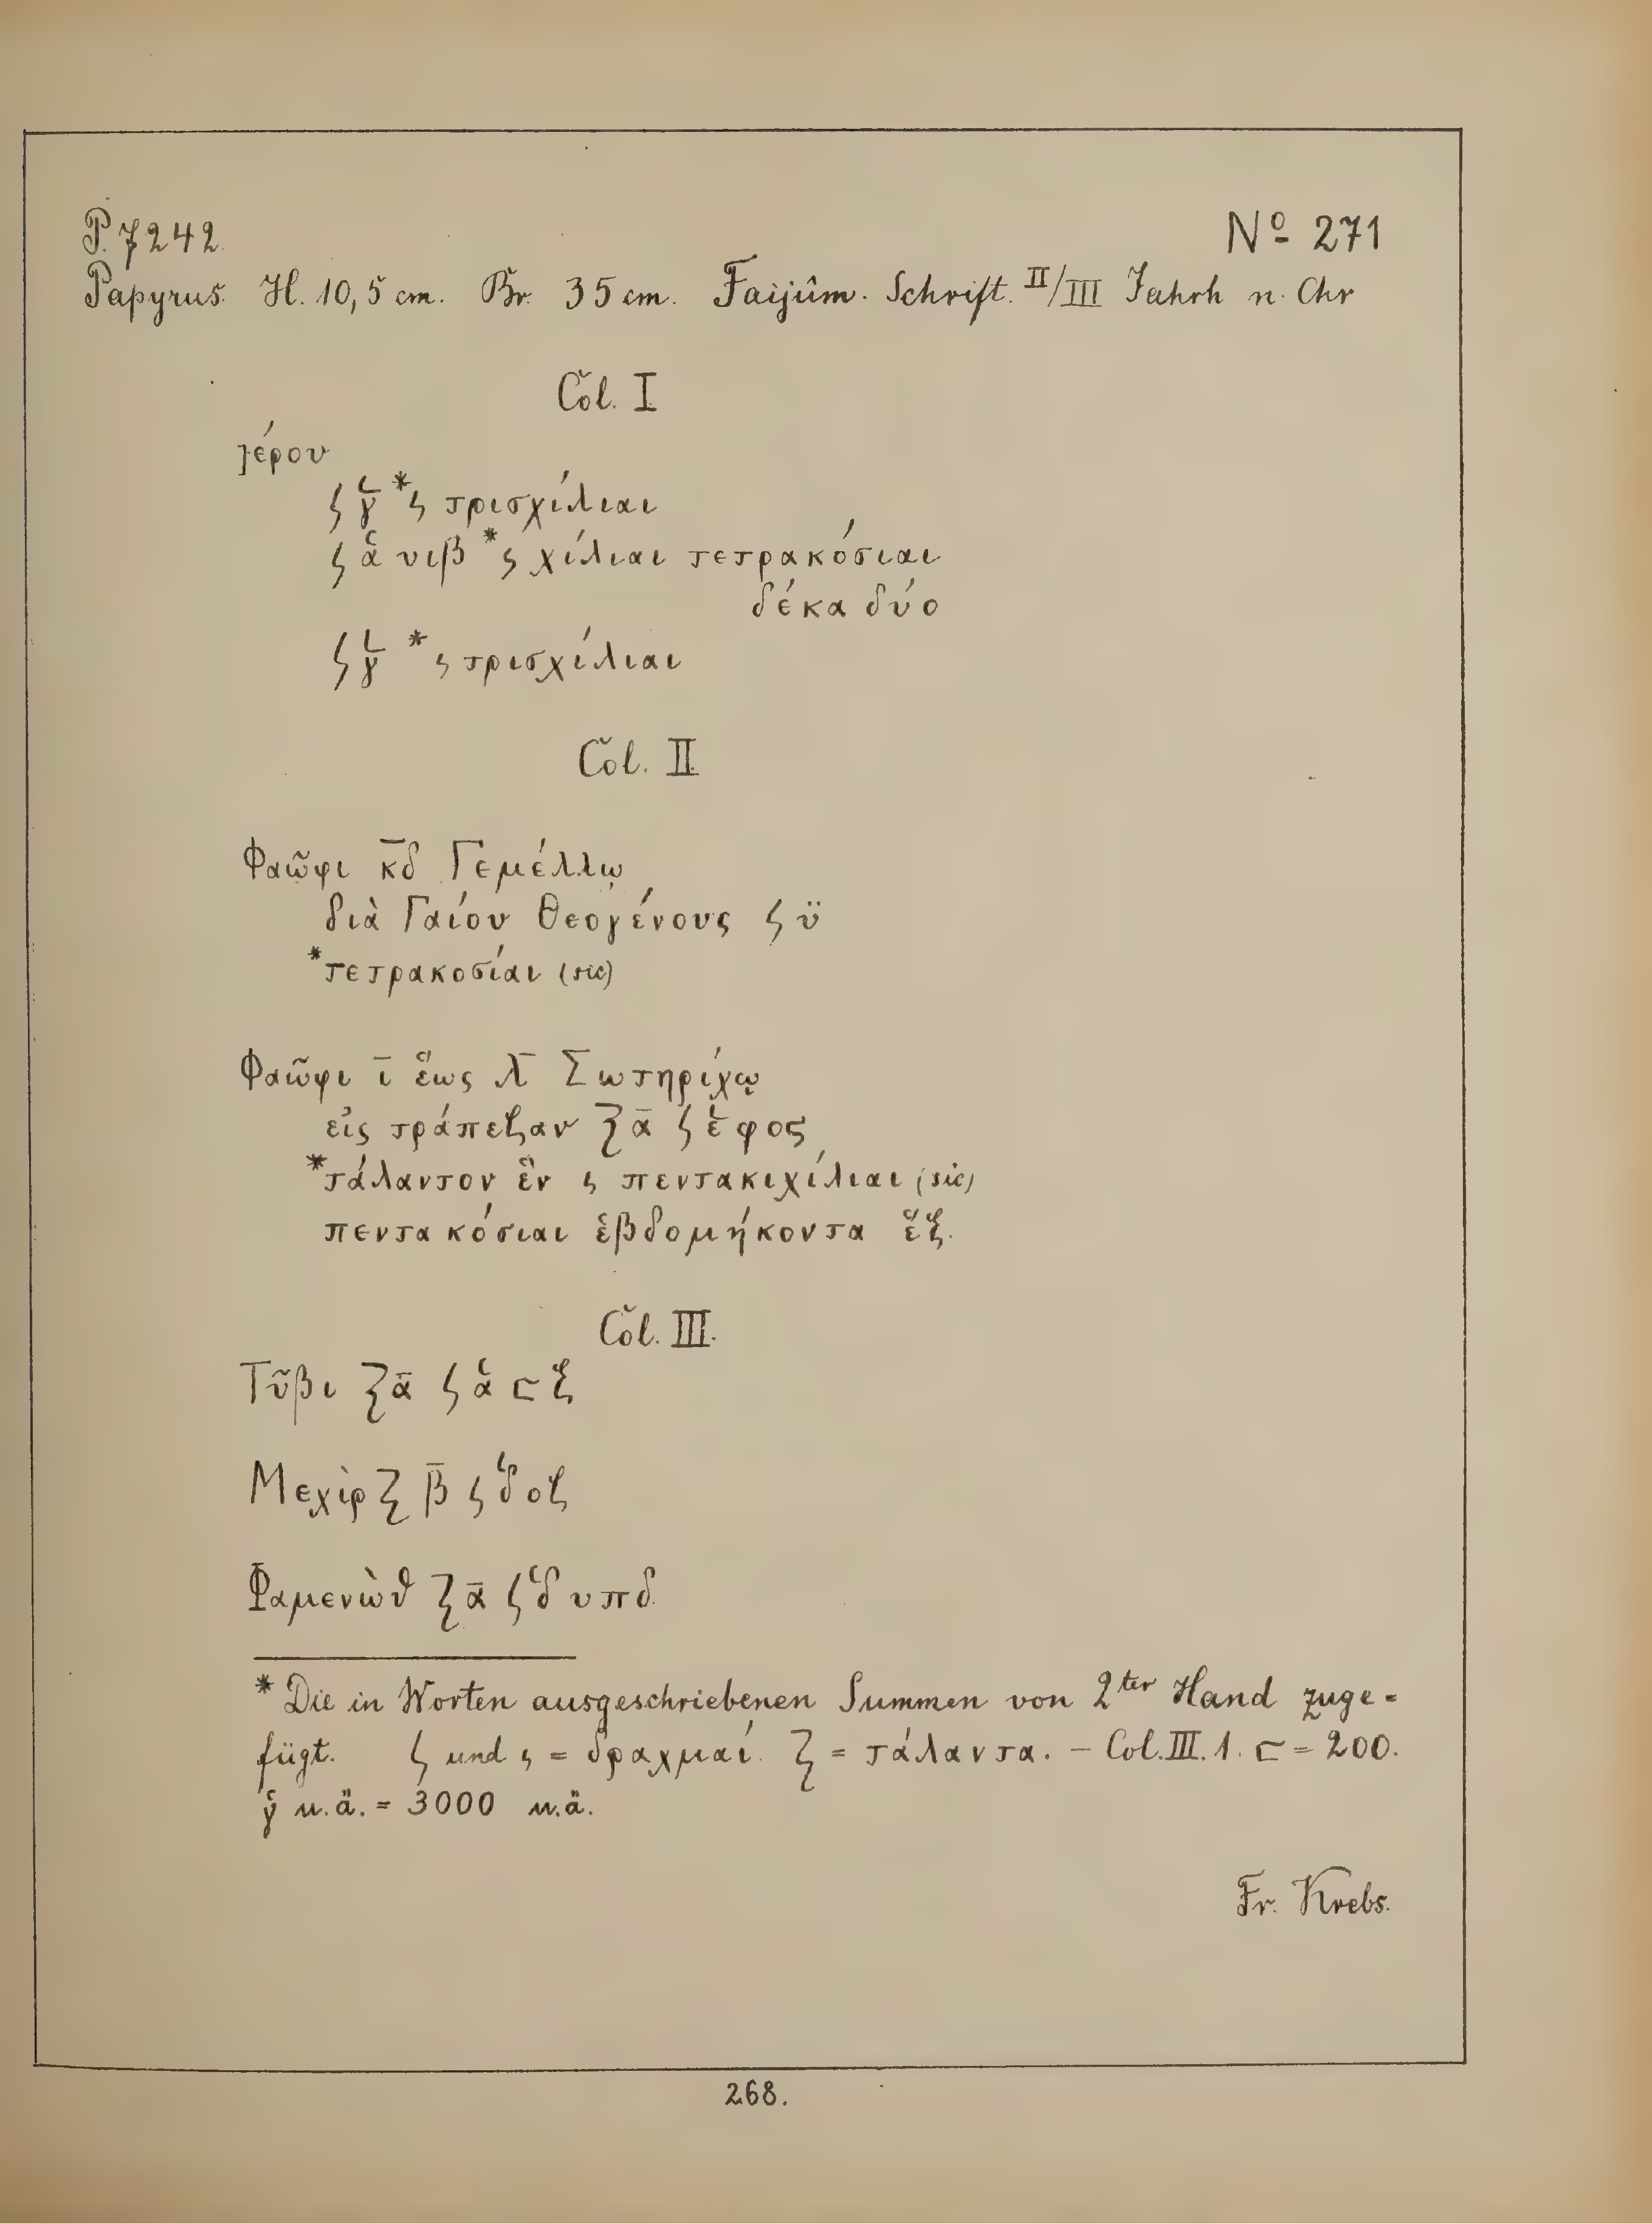 P. 7242.
Nº 271
Papyrus. H. 10,5 cm. Br. 35 cm. Faijûm. Schrift. II/III Jahrh n. Chr
Col. I
]έρου
𐅹 ͵γ *ϛ τρισχίλιαι
ϛ ͵α υιβ *ϛ χίλιαι τετρακόσιαι
δέκα δύο
ϛ ͵γ *ϛ τρισχίλιαι
Col. II
Φαῶφι κ̅δ̅ Γεμέλλῳ
διὰ Γαίου Θεογένους ϛ ϋ
*τετρακοσίαι (sic)
Φαῶφι ι̅ ἕως λ̅ Σωτηρίχῳ
εἰς τράπεζαν 𐅺 α̅ ϛ ͵ε φοϛ
*τάλαντον ἓν ϛ πεντακιχίλιαι (sic)
πεντακόσιαι ἑβδομήκοντα ἕξ.
Col. III.
Τῦβι 𐅺 α̅ ϛ ͵α ⊏ ξ
Μεχὶρ 𐅺 β̅ ϛ ͵δ οζ
Φαμενὼθ 𐅺 α̅ ϛ ͵δ υπδ
* Die in Worten ausgeschriebenen Summen von 2ter Hand zuge=
fügt. ϛ und ϛ = δραχμαί. 𐅺 = τάλαντα. – Col. III. 1. ⊏ = 200.
͵γ u. ä. = 3000 u. ä.
Fr. Krebs.
268.